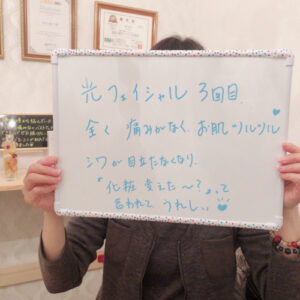 光フェイシャル 3回目
全く 痛みがなく、お肌ツルツル
シワが目立たなくなり、
"化粧 変えた〜?"って
言われて うれしい